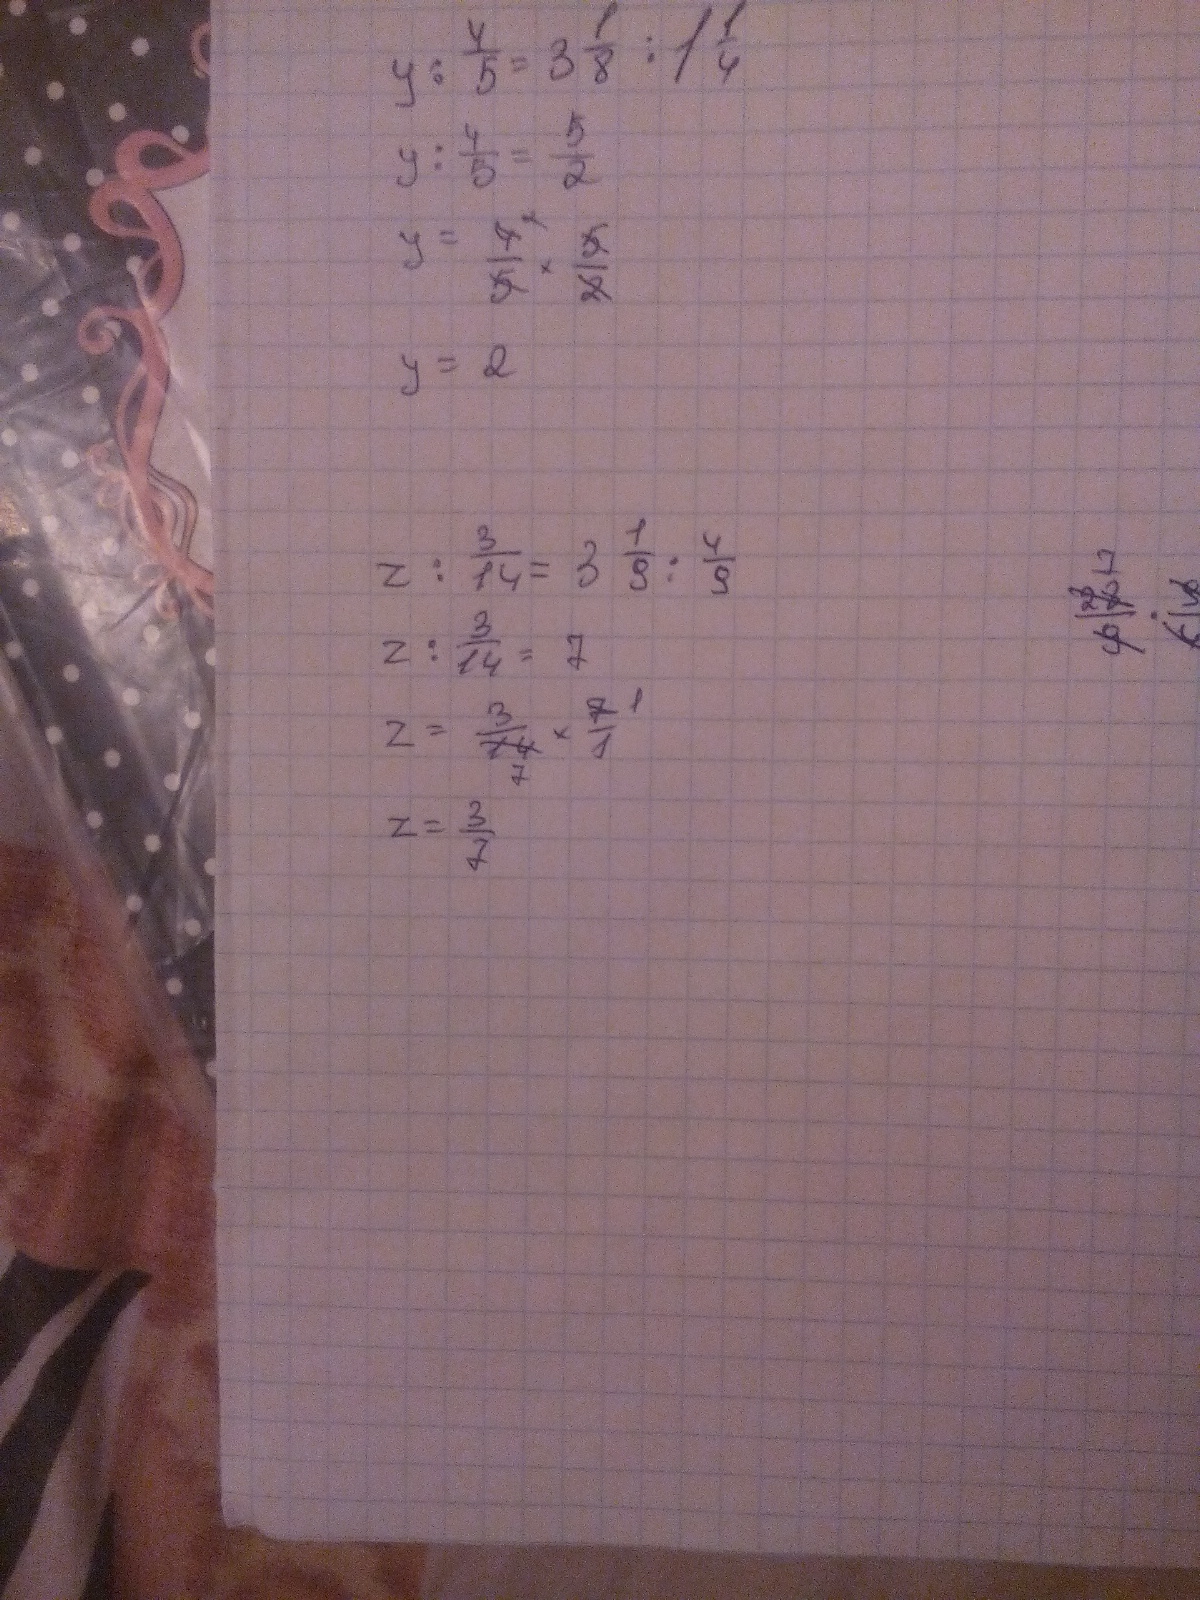 y : 4/5 = 3 1/8 : 1 1/4
y : 4/5 = 5/2
y = 4/5 × 5/2
y = 2
z : 3/14 = 3 1/9 : 4/9
z : 3/14 = 7
z = 3/14 × 7/1
z = 3/7